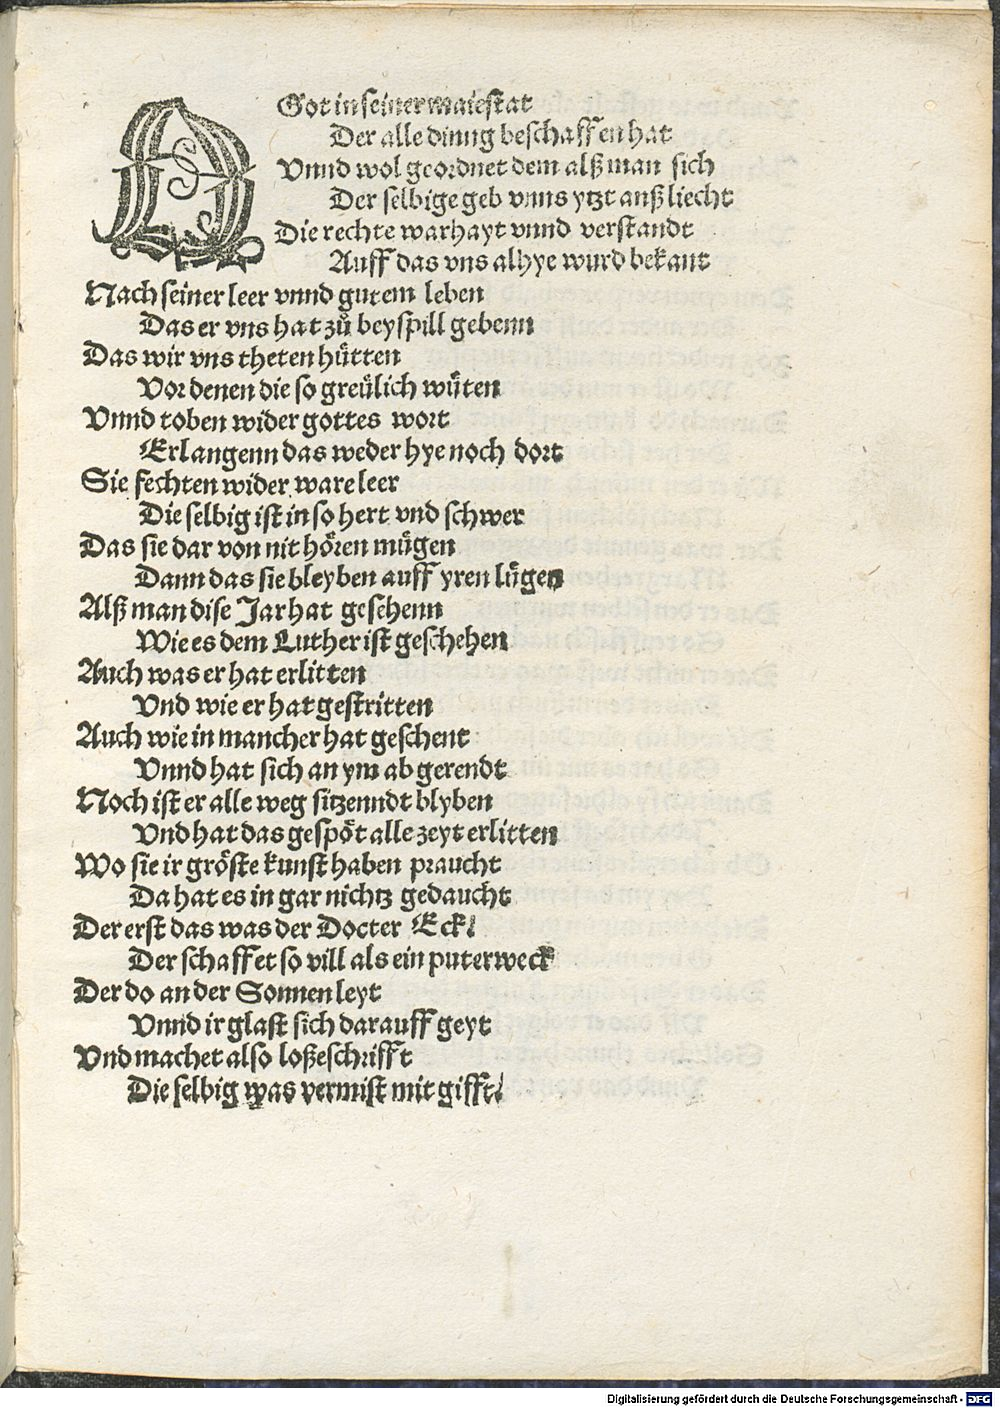 O Got in seiner maiestat
Der alle dinng beschaffen hat
Vnnd wol geordnet dem alß man sich
Der selbige geb vnns ytzt anß liecht
Die rechte warhayt vnnd verstandt
Auff das vns alhye wurd bekant
Nach seiner leer vnnd gutem leben
Das er vns hat zů beyspill gebenn
Das wir vns theten hütten
Vor denen die so greülich wüten
Vnnd toben wider gottes wort
Erlangenn das weder hye noch dort
Sie fechten wider ware leer
Die selbig ist in so hert vnd schwer
Das sie dar von nit hören mügen
Dann das sie bleyben auff yren lügen
Alß man dise Jar hat gesehenn
Wie es dem Luther ist geschehen
Auch was er hat erlitten
Vnd wie er hat gestritten
Auch wie in mancher hat geschent
Vnnd hat sich an ym ab gerendt
Noch ist er alle weg sitzenndt blyben
Vnd hat das gespöt alle zeyt erlitten
Wo sie ir gröste kunst haben praucht
Da hat es in gar nichtz gedaucht
Der erst das was der Docter Eck/
Der schaffet so vill als ein puterweck
Der do an der Sonnen leyt
Vnnd ir glast sich darauff geyt
Vnd machet also loße schrifft
Die selbig was vermist mit gifft/
Digitalisierung gefördert durch die Deutsche Forschungsgemeinschaft - DFG